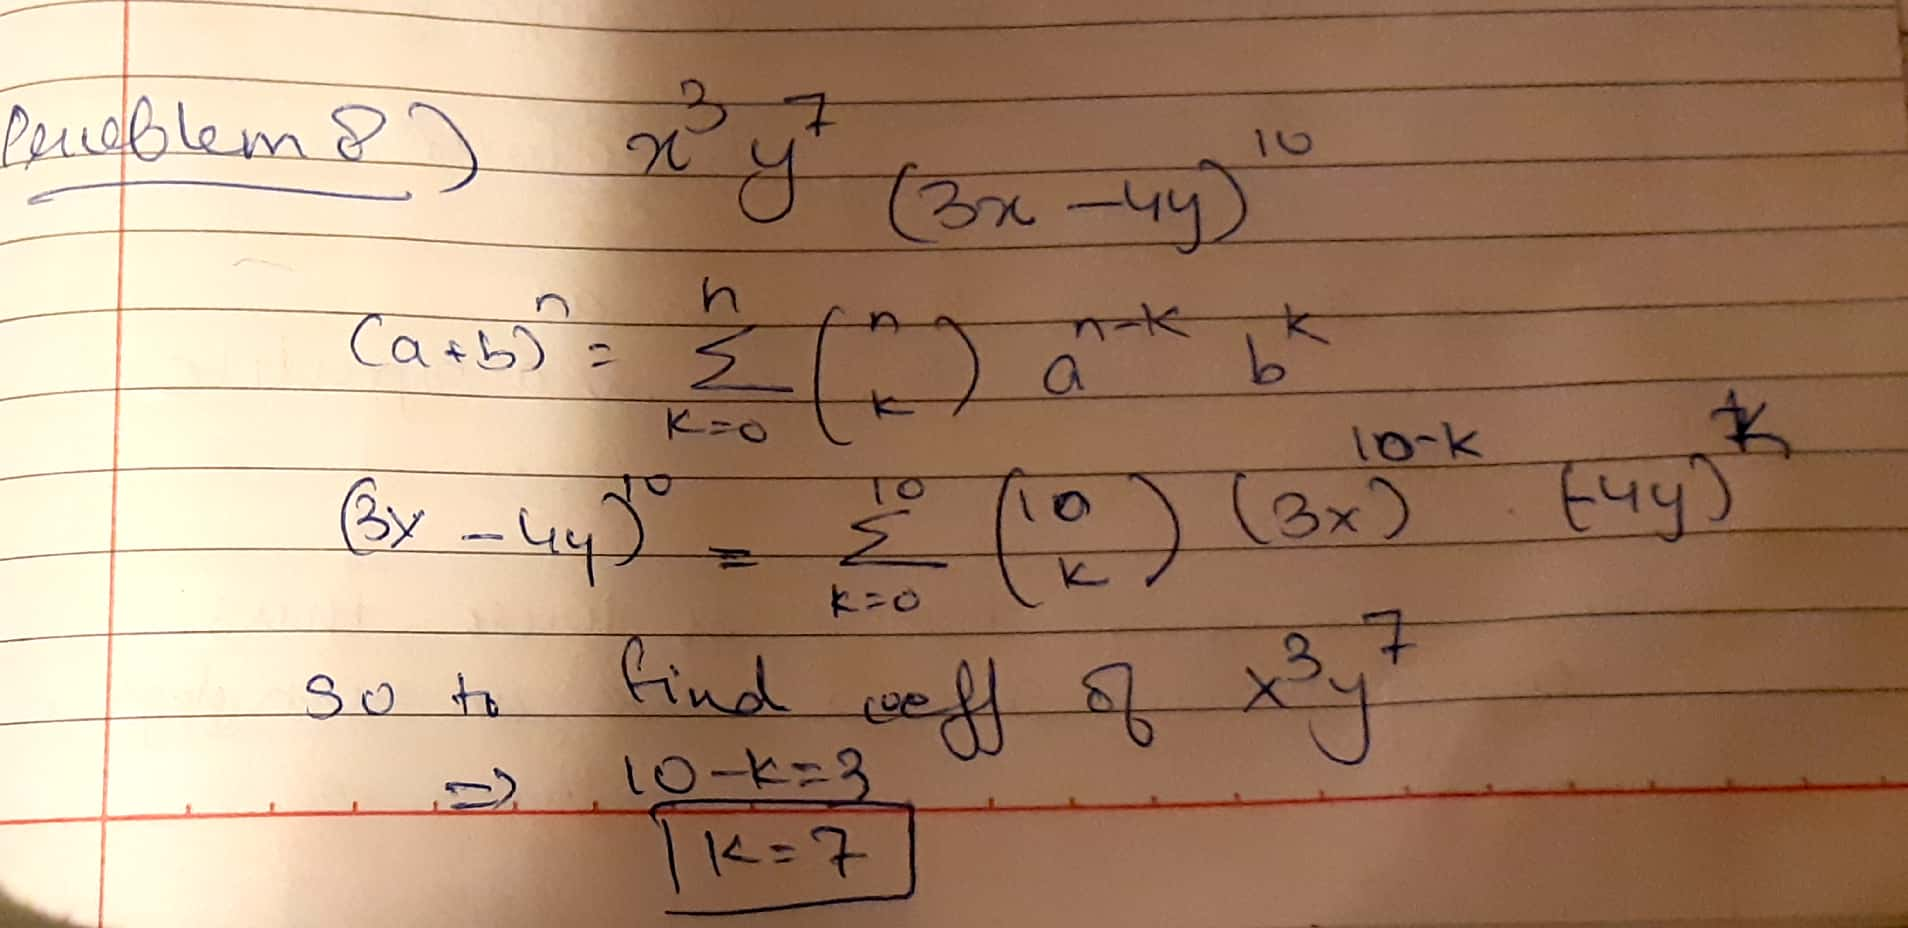 Problem 8) x³y⁷ (3x – 4y)¹⁰
(a+b)ⁿ = Σ_{k=0}^{n} (n k) a^{n-k} b^k
(3x – 4y)¹⁰ = Σ_{k=0}^{10} (10 k) (3x)^{10-k} · (-4y)^k
so to find coeff of x³y⁷
⇒ 10-k=3
k=7